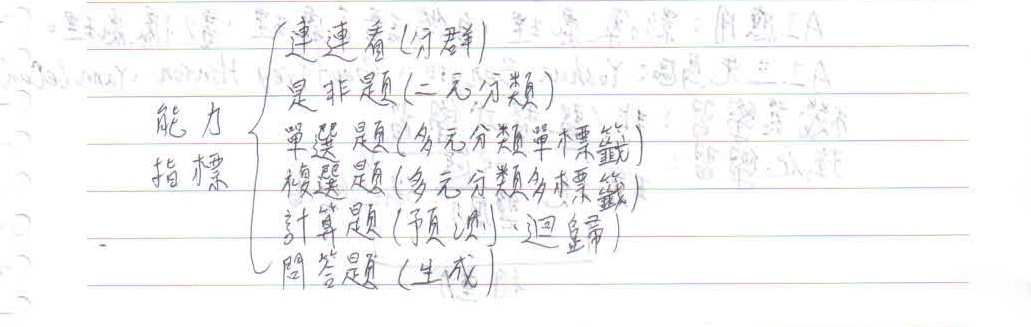 能力
指標
連連看(分群)
是非題(二元分類)
單選題(多元分類單標籤)
複選題(多元分類多標籤)
計算題(預測、迴歸)
問答題(生成)